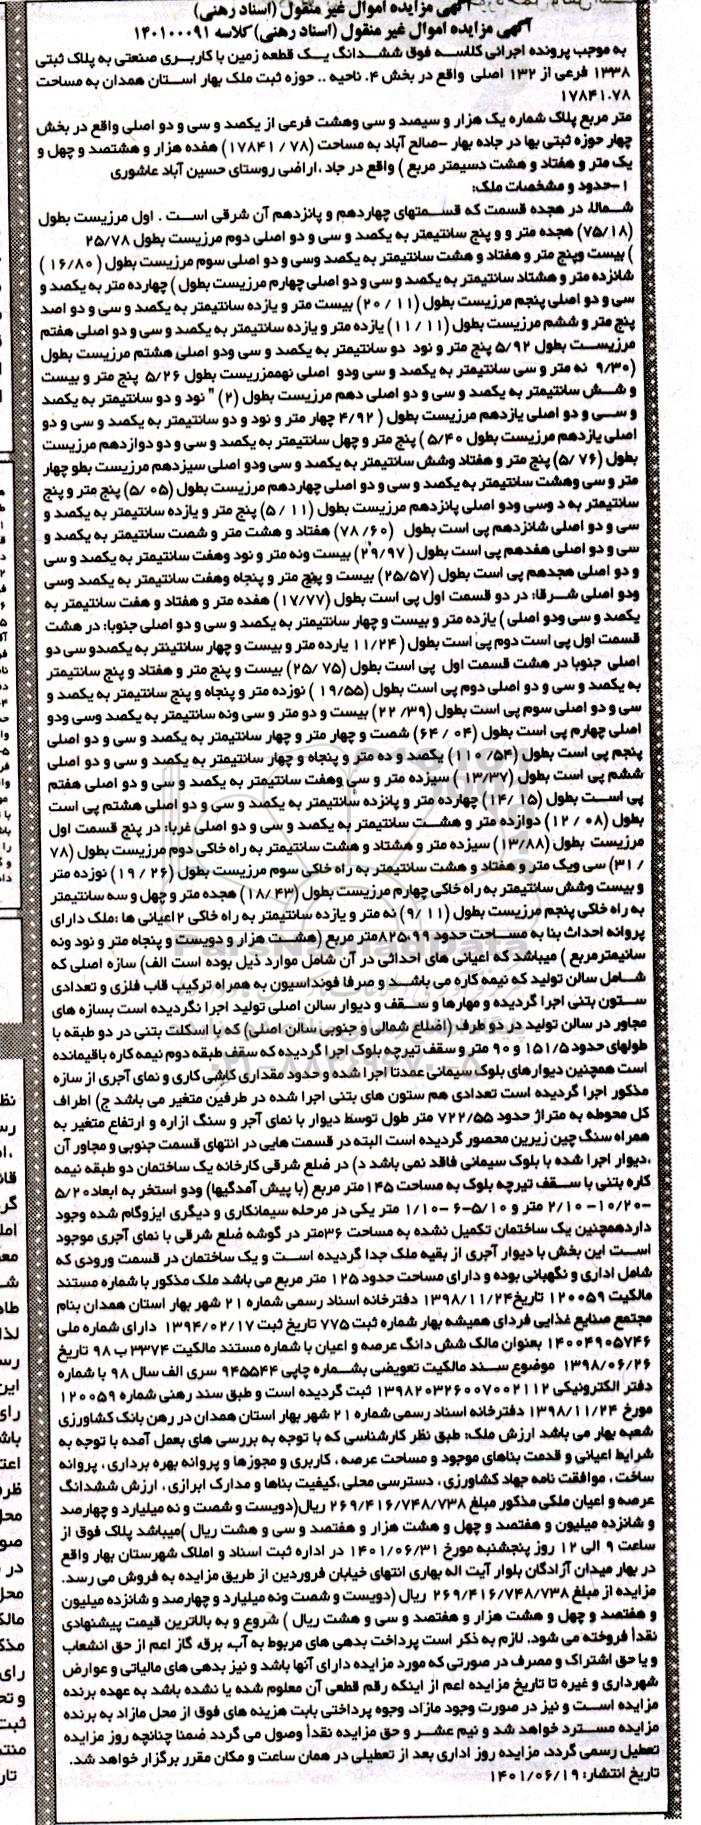 آگهی مزایده اموال غیر منقول (اسناد رهنی)
آگهی مزایده اموال غیر منقول (اسناد رهنی) کلاسه ۱۴۰۱۰۰۰۹۱
به موجب پرونده اجرائی کلاسه فوق ششدانگ یک قطعه زمین با کاربری صنعتی به پلاک ثبتی
۱۳۳۸ فرعی از ۱۳۲ اصلی واقع در بخش ۴. ناحیه .. حوزه ثبت ملک بهار استان همدان به مساحت
۱۷۸۴۱.۷۸
متر مربع پلاک شماره یک هزار و سیصد و سی وهشت فرعی از یکصد و سی و دو اصلی واقع در بخش
چهار حوزه ثبتی بها در جاده بهار -صالح آباد به مساحت (۱۷۸۴۱/۷۸) هفده هزار و هشتصد و چهل و
یک متر و هفتاد و هشت دسیمتر مربع ) واقع در جاد ،اراضی روستای حسین آباد عاشوری
۱-حدود و مشخصات ملک:
شمالا، در هجده قسمت که قسمتهای چهاردهم و پانزدهم آن شرقی است . اول مرزیست بطول
(۷۵/۱۸) هجده متر و و پنج سانتیمتر به یکصد و سی و دو اصلی دوم مرزیست بطول ۲۵/۷۸
) بیست وپنج متر و هفتاد و هشت سانتیمتر به یکصد وسی و دو اصلی سوم مرزیست بطول ( ۱۶/۸۰ )
شانزده متر و هشتاد سانتیمتر به یکصد و سی و دو اصلی چهارم مرزیست بطول ) چهارده متر به یکصد و
سی و دو اصلی پنجم مرزیست بطول (۲۰/۱۱) بیست متر و یازده سانتیمتر به یکصد و سی و دو اصد
پنج متر و ششم مرزیست بطول (۱۱/۱۱) یازده متر و یازده سانتیمتر به یکصد و سی و دو اصلی هفتم
مرزیست بطول ۵/۹۲ پنج متر و نود دو سانتیمتر به یکصد و سی ودو اصلی هشتم مرزیست بطول
(۹/۳۰ نه متر و سی سانتیمتر به یکصد و سی ودو اصلی نهممرزریست بطول ۵/۲۶ پنج متر و بیست
و شش سانتیمتر به یکصد و سی و دو اصلی دهم مرزیست بطول (۲) " نود و دو سانتیمتر به یکصد
و سی و دو اصلی یازدهم مرزیست بطول ( ۴/۹۲ چهار متر و نود و دو سانتیمتر به یکصد و سی و دو
اصلی یازدهم مرزیست بطول ۵/۴۰) پنج متر و چهل سانتیمتر به یکصد و سی و دو دوازدهم مرزیست
بطول (۵/۷۶) پنج متر و هفتاد وشش سانتیمتر به یکصد و سی ودو اصلی سیزدهم مرزیست بطو چهار
متر و سی وهشت سانتیمتر به یکصد و سی و دو اصلی چهاردهم مرزیست بطول (۵/۰۵) پنج متر و پنج
سانتیمتر به د وسی ودو اصلی پانزدهم مرزیست بطول (۵/۱۱) پنج متر و یازده سانتیمتر به یکصد و
سی و دو اصلی شانزدهم پی است بطول (۷۸/۶۰) هفتاد و هشت متر و شصت سانتیمتر به یکصد و
سی و دو اصلی هفدهم پی است بطول (۲۹/۹۷) بیست ونه متر و نود وهفت سانتیمتر به یکصد و سی
و دو اصلی هجدهم پی است بطول (۲۵/۵۷) بیست و پنج متر و پنجاه وهفت سانتیمتر به یکصد وسی
ودو اصلی شرقا: در دو قسمت اول پی است بطول (۱۷/۷۷) هفده متر و هفتاد و هفت سانتیمتر به
یکصد و سی ودو اصلی ) یازده متر و بیست و چهار سانتیمتر به یکصد و سی و دو اصلی جنوبا: در هشت
قسمت اول پی است دوم پی است بطول ( ۱۱/۲۴ یارده متر و بیست و چهار سانتینتر به یکصدو سی دو
اصلی جنوبا در هشت قسمت اول پی است بطول (۲۵/۷۵) بیست و پنج متر و هفتاد و پنج سانتیمتر
به یکصد و سی و دو اصلی دوم پی است بطول (۱۹/۵۵ ) نوزده متر و پنجاه و پنج سانتیمتر به یکصد و
سی و دو اصلی سوم پی است بطول (۲۲/۳۹) بیست و دو متر و سی ونه سانتیمتر به یکصد وسی ودو
اصلی چهارم پی است بطول (۶۴/۰۴) شصت و چهار متر و چهار سانتیمتر به یکصد و سی و دو اصلی
پنجم پی است بطول (۱۱۰/۵۴) یکصد و ده متر و پنجاه و چهار سانتیمتر به یکصد و سی و دو اصلی
ششم پی است بطول (۱۳/۳۷ ) سیزده متر و سی وهفت سانتیمتر به یکصد و سی و دو اصلی هفتم
پی است بطول (۱۴/۱۵) چهارده متر و پانزده سانتیمتر به یکصد و سی و دو اصلی هشتم پی است
بطول (۱۲/۰۸) دوازده متر و هشت سانتیمتر به یکصد و سی و دو اصلی غربا: در پنج قسمت اول
مرزیست بطول (۱۳/۸۸) سیزده متر و هشتاد و هشت سانتیمتر به راه خاکی دوم مرزیست بطول (۷۸
/۳۱) سی ویک متر و هفتاد و هشت سانتیمتر به راه خاکی سوم مرزیست بطول (۱۹/۲۶) نوزده متر
و بیست وشش سانتیمتر به راه خاکی چهارم مرزیست بطول (۱۸/۴۳) هجده متر و چهل و سه سانتیمتر
به راه خاکی پنجم مرزیست بطول (۹/۱۱) نه متر و یازده سانتیمتر به راه خاکی ۲اعیانی ها :ملک دارای
پروانه احداث بنا به مساحت حدود ۸۲۵۰.۹۹متر مربع (هشت هزار و دویست و پنجاه متر و نود ونه
سانیمترمربع ) میباشد که اعیانی های احداثی در آن شامل موارد ذیل بوده است الف) سازه اصلی که
شامل سالن تولید که نیمه کاره می باشد و صرفا فونداسیون به همراه ترکیب قاب فلزی و تعدادی
ستون بتنی اجرا گردیده و مهارها و سقف و دیوار سالن اصلی تولید اجرا نگردیده است بسازه های
مجاور در سالن تولید در دو طرف (اضلاع شمالی و جنوبی سالن اصلی) که با اسکلت بتنی در دو طبقه با
طولهای حدود ۱۵۱/۵ و ۹۰ متر و سقف تیرچه بلوک اجرا گردیده که سقف طبقه دوم نیمه کاره باقیمانده
است همچنین دیوارهای بلوک سیمانی عمدتا اجرا شده و حدود مقداری کاشی کاری و نمای آجری از سازه
مذکور اجرا گردیده است تعدادی هم ستون های بتنی اجرا شده در طرفین متغیر می باشد ج) اطراف
کل محوطه به متراژ حدود ۷۲۲/۵۵ متر طول توسط دیوار با نمای آجر و سنگ ازاره و ارتفاع متغیر به
همراه سنگ چین زیرین محصور گردیده است البته در قسمت هایی در انتهای قسمت جنوبی و مجاور آن
،دیوار اجرا شده با بلوک سیمانی فاقد نمی باشد د) در ضلع شرقی کارخانه یک ساختمان دو طبقه نیمه
کاره بتنی با سقف تیرچه بلوک به مساحت ۱۴۵متر مربع (با پیش آمدگیها) ودو استخر به ابعاد ۵/۲۰
-۱۰/۲۰- ۲/۱۰ متر و ۵/۱۰-۶ -۱/۱۰ متر یکی در مرحله سیمانکاری و دیگری ایزوگام شده وجود
داردهمچنین یک ساختمان تکمیل نشده به مساحت ۳۶متر در گوشه ضلع شرقی با نمای آجری موجود
است این بخش با دیوار آجری از بقیه ملک جدا گردیده است و یک ساختمان در قسمت ورودی که
شامل اداری و نگهبانی بوده و دارای مساحت حدود ۱۲۵ متر مربع می باشد ملک مذکور با شماره مستند
مالکیت ۱۲۰۰۵۹ تاریخ ۱۳۹۸/۱۱/۲۴ دفترخانه اسناد رسمی شماره ۲۱ شهر بهار استان همدان بنام
مجتمع صنایع غذایی فردای همیشه بهار شماره ثبت ۷۷۵ تاریخ ثبت ۱۳۹۴/۰۲/۱۷ دارای شماره ملی
۱۴۰۰۴۹۰۵۷۴۶ بعنوان مالک شش دانگ عرصه و اعیان با شماره مستند مالکیت ۳۳۷۴ ب ۹۸ تاریخ
۱۳۹۸/۰۶/۲۶ موضوع سند مالکیت تعویضی بشماره چاپی ۹۴۵۵۴۴ سری الف سال ۹۸ با شماره
دفتر الکترونیکی ۱۳۹۸۲۰۳۲۶۰۰۷۰۰۲۱۱۲ ثبت گردیده است و طبق سند رهنی شماره ۱۲۰۰۵۹
مورخ ۱۳۹۸/۱۱/۲۴ دفترخانه اسناد رسمی شماره ۲۱ شهر بهار استان همدان در رهن بانک کشاورزی
شعبه بهار می باشد ارزش ملک: طبق نظر کارشناسی که با توجه به بررسی های بعمل آمده با توجه به
شرایط اعیانی و قدمت بناهای موجود و مساحت عرصه ، کاربری و مجوزها و پروانه بهره برداری ، پروانه
ساخت ، موافقت نامه جهاد کشاورزی ، دسترسی محلی ،کیفیت بناها و مدارک ابرازی ، ارزش ششدانگ
عرصه و اعیان ملکی مذکور مبلغ ۲۶۹/۴۱۶/۷۴۸/۷۳۸ ریال(دویست و شصت و نه میلیارد و چهارصد
و شانزده میلیون و هفتصد و چهل و هشت هزار و هفتصد و سی و هشت ریال )میباشد پلاک فوق از
ساعت ۹ الی ۱۲ روز پنجشنبه مورخ ۱۴۰۱/۰۶/۳۱ در اداره ثبت اسناد و املاک شهرستان بهار واقع
در بهار میدان آزادگان بلوار آیت اله بهاری انتهای خیابان فروردین از طریق مزایده به فروش می رسد.
مزایده از مبلغ ۲۶۹/۴۱۶/۷۴۸/۷۳۸ ریال (دویست و شصت ونه میلیارد و چهارصد و شانزده میلیون
و هفتصد و چهل و هشت هزار و هفتصد و سی و هشت ریال ) شروع و به بالاترین قیمت پیشنهادی
نقداً فروخته می شود. لازم به ذکر است پرداخت بدهی های مربوط به آب، برق، گاز اعم از حق انشعاب
و یا حق اشتراک و مصرف در صورتی که مورد مزایده دارای آنها باشد و نیز بدهی های مالیاتی و عوارض
شهرداری و غیره تا تاریخ مزایده اعم از اینکه رقم قطعی آن معلوم شده یا نشده باشد به عهده برنده
مزایده است و نیز در صورت وجود مازاد، وجوه پرداختی بابت هزینه های فوق از محل مازاد به برنده
مزایده مسترد خواهد شد و نیم عشر و حق مزایده نقداً وصول می گردد ضمنا چنانچه روز مزایده
تعطیل رسمی گردد، مزایده روز اداری بعد از تعطیلی در همان ساعت و مکان مقرر برگزار خواهد شد.
تاریخ انتشار: ۱۴۰۱/۰۶/۱۹